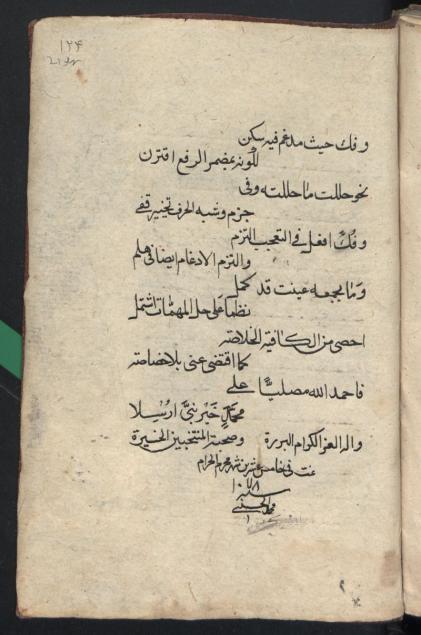 ١٢٤
وفك حيث مدغم فيه سكن
لكونه بمضمر الرفع اقترن
نحو حللت ما حللته وفى
جزم وشبه الجزم تخيير قفى
وفك افعل فى التعجب التزم
والتزم الادغام ايضا فى هلم
وما بجمعه عنيت قد كمل
نظما على جل المهمات اشتمل
احصى من الكافية الخلاصة
كما اقتضى غنى بلا خصاصة
فاحمد الله مصليا على
محمد خير نبى ارسلا
واله الغر الكرام البررة
وصحبه المنتخبين الخيرة
تمت فى خامس عشرين شهر محرم الحرام
سنة ١٠٧٨